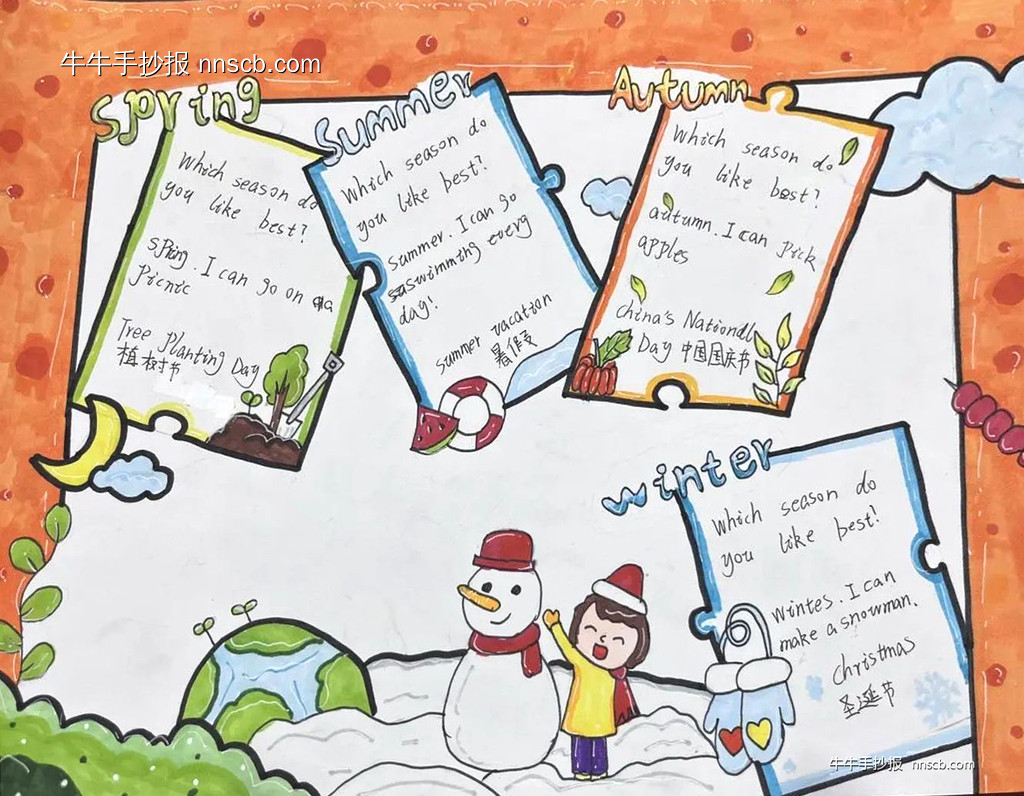 牛牛手抄报 nnscb.com
spring
Which season do
you like best?
spring. I can go on a
picnic
Tree Planting Day
植树节
summer
Which season do
you like best?
summer. I can go
swimming every
day!
summer vacation
暑假
Autumn
Which season do
you like best?
autumn. I can pick
apples
china's National
Day 中国国庆节
winter
Which season do
you like best?
wintes. I can
make a snowman.
christmas
圣诞节
牛牛手抄报 nnscb.com